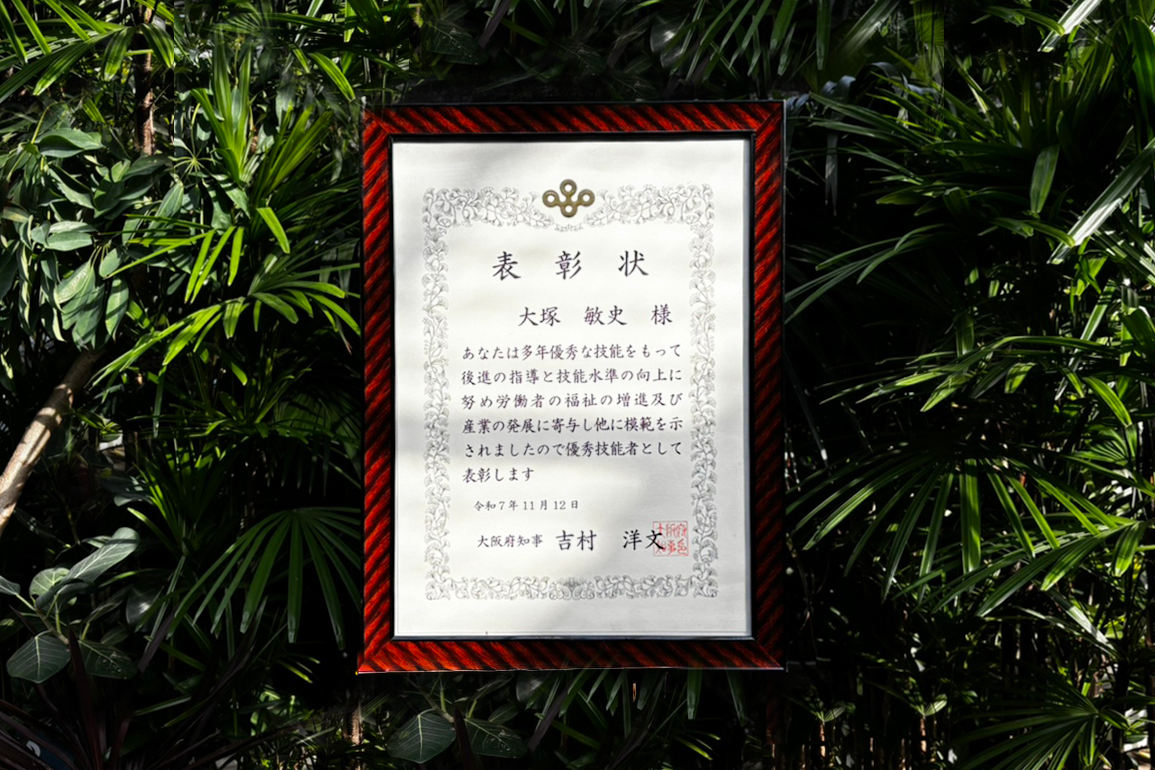 表彰状
大塚 敏史 様
あなたは多年優秀な技能をもって
後進の指導と技能水準の向上に
努め労働者の福祉の増進及び
産業の発展に寄与し他に模範を示
されましたので優秀技能者として
表彰します
令和7年11月12日
大阪府知事 吉村 洋文